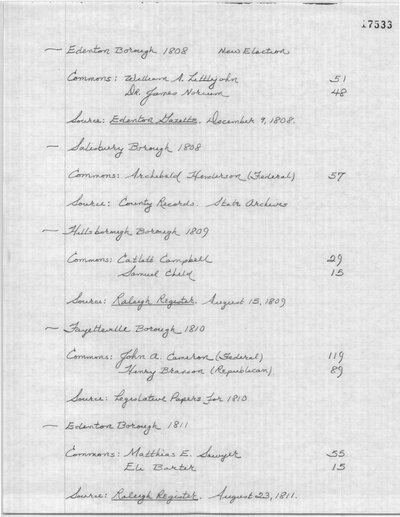 17533
— Edenton Borough 1808 New Election
Commons: William A. Littlejohn 51
Dr. James Norcum 48
Source: Edenton Gazette. December 9, 1808.
— Salisbury Borough 1808
Commons: Archibald Henderson (Federal) 57
Source: County Records. State Archives
— Hillsborough Borough 1809
Commons: Catlett Campbell 29
Samuel Child 15
Source: Raleigh Register. August 15, 1809
— Fayetteville Borough 1810
Commons: John A. Cameron (Federal) 119
Henry Branson (Republican) 89
Source: Legislative Papers for 1810
— Edenton Borough 1811
Commons: Matthias E. Sawyer 55
Eli Barter 15
Source: Raleigh Register. August 23, 1811.